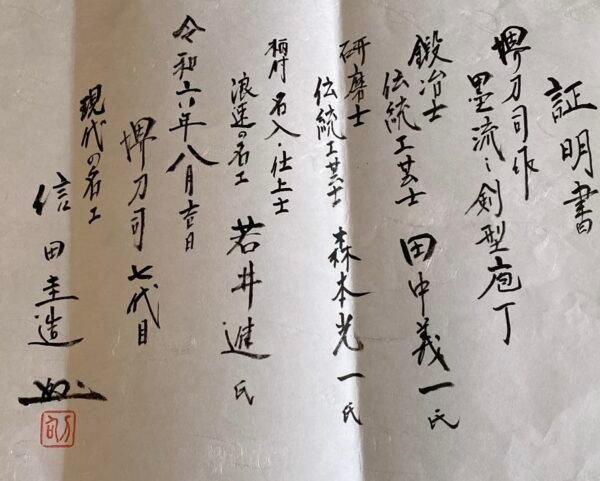 証明書
堺刀司作
墨流し剣型庖丁
鍛冶士
伝統工芸士 田中義一氏
研磨士
伝統工芸士 森本光一氏
柄付 名入・仕上士
浪速の名工 若井進氏
令和六年八月吉日
堺刀司 七代目
現代の名工
信田圭造